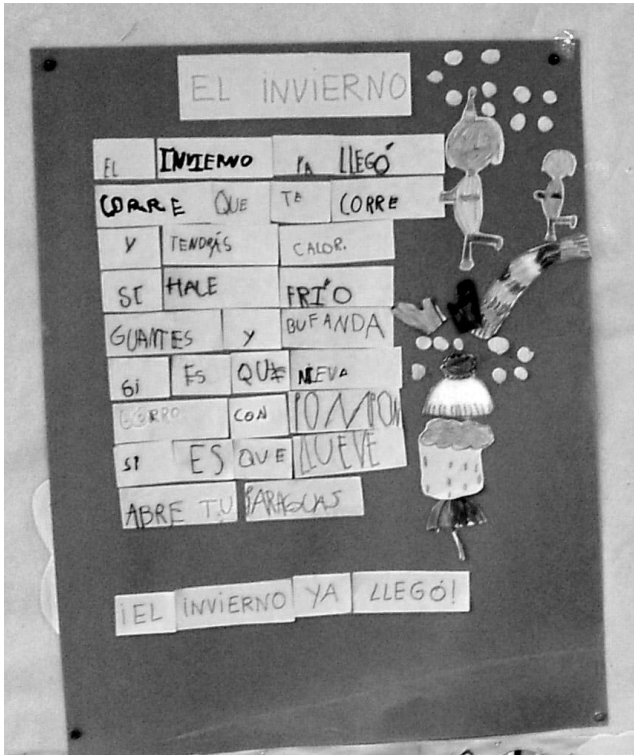 EL INVIERNO
EL INVIERNO YA LLEGÓ
CORRE QUE TE CORRE
Y TENDRÁS CALOR.
SI HALE FRÍO
GUANTES Y BUFANDA
SI ES QUE NIEVA
GORRO CON POMPON
SI ES QUE LLUEVE
ABRE TU PARAGUAS
¡EL INVIERNO YA LLEGÓ!